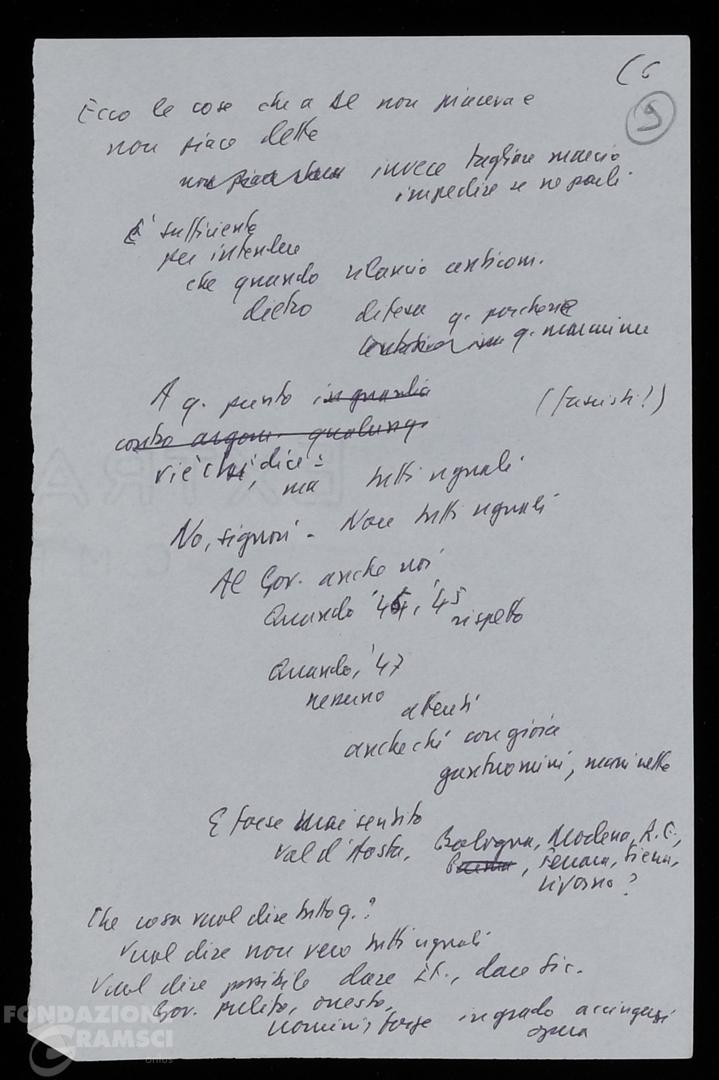 (6
9
Ecco le cose che a De non piaceva e
non piace dette
non piace invece tagliare marcio
impedire se ne parli
È sufficiente
per intendere
che quando rilancio anticom.
dietro difesa q. porcherie
q. marciume
A q. punto in guardia
(fascisti?)
contro argom. qualunq.
v'è chi dice:
ma tutti uguali
No, signori - Non tutti uguali
Al Gov. anche noi
Quando '44, '45
rispetto
Quando, '47
nessuno
attenti
anche chi con gioia
gastronomini, marinelle
E forse mai sentito
Val d'Aosta, Bologna, Modena, R.E.,
Parma, Ferrara, Siena,
Livorno?
Che cosa vuol dire tutto q.?
Vuol dire non vero tutti uguali
Vuol dire possibile dare It., dare Sic.
Gov. pulito, onesto,
uomini forse in grado accingersi
opera
FONDAZIONE
GRAMSCI
onlus